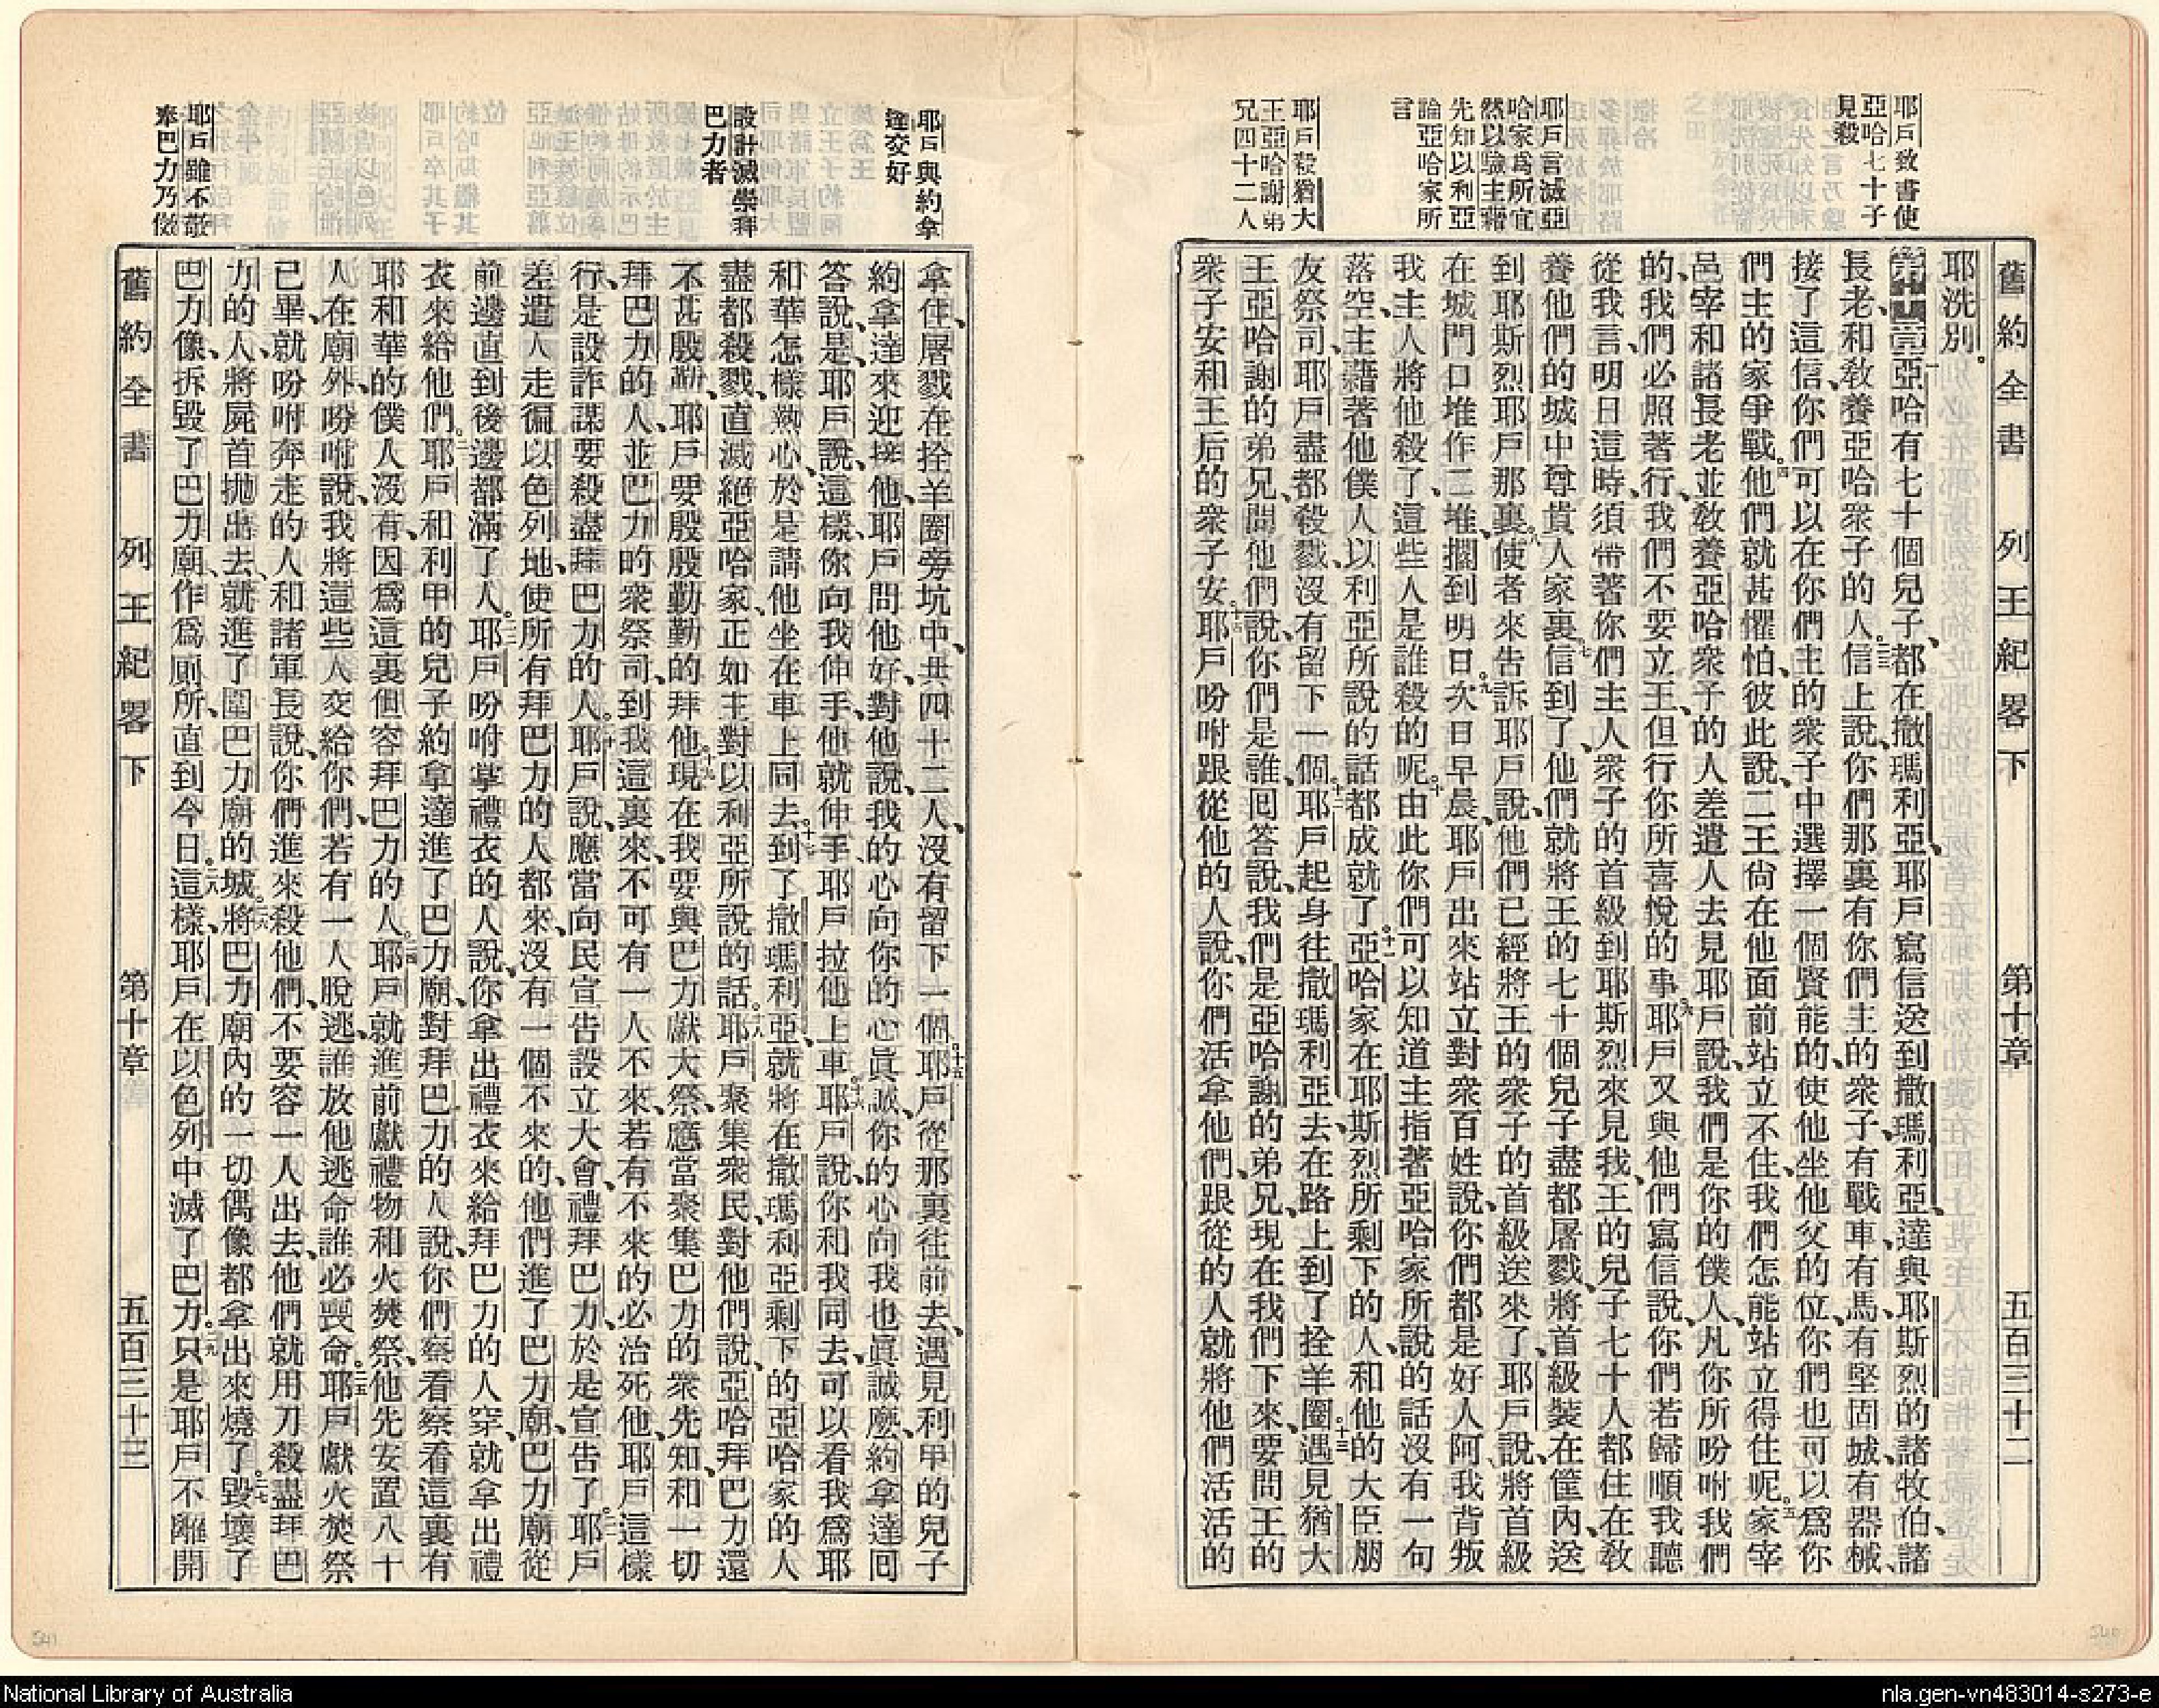 舊約全書 列王紀畧下 第十章 五百三十二
耶戶致書使
亞哈七十子
見殺
耶戶言滅亞
哈家爲所宜
然以驗主藉
先知以利亞
論亞哈家所
言
耶戶殺猶大
王亞哈謝弟
兄四十二人
耶洗別。
第十章亞哈有七十個兒子、都在撒瑪利亞、耶戶寫信送到撒瑪利亞、達與耶斯烈的諸牧伯、諸
長老、和敎養亞哈衆子的人。二信上說、你們那裏有你們主的衆子、有戰車、有馬、有堅固城、有器械、
接了這信、三你們可以在你們主的衆子中選擇一個賢能的、使他坐他父的位、你們也可以爲你
們主的家爭戰。四他們就甚懼怕、彼此說、二王尙在他面前站立不住、我們怎能站立得住呢。五家宰
邑宰和諸長老、並敎養亞哈衆子的人差遣人去見耶戶說、我們是你的僕人、凡你所吩咐我們
的、我們必照著行、我們不要立王、但行你所喜悅的事。六耶戶又與他們寫信說、你們若歸順我聽
從我言、明日這時、須帶著你們主人衆子的首級到耶斯烈來見我、王的兒子七十人都住在敎
養他們的城中尊貴人家裏。七信到了、他們就將王的七十個兒子盡都屠戮、將首級裝在筐內、送
到耶斯烈耶戶那裏。八使者來告訴耶戶說、他們已經將王的衆子的首級送來了、耶戶說、將首級
在城門口堆作二堆、擱到明日。九次日早晨、耶戶出來站立對衆百姓說、你們都是好人阿、我背叛
我主人將他殺了、這些人是誰殺的呢。十由此你們可以知道主指著亞哈家所說的話沒有一句
落空、主藉著他僕人以利亞所說的話都成就了。十一亞哈家在耶斯烈所剩下的人、和他的大臣朋
友祭司、耶戶盡都殺戮沒有留下一個。十二耶戶起身往撒瑪利亞去、在路上到了拴羊圈、十三遇見猶大
王亞哈謝的弟兄、問他們說、你們是誰、回答說、我們是亞哈謝的弟兄、現在我們下來、要問王的
衆子安和王后的衆子安。十四耶戶吩咐跟從他的人說、你們活拿他們、跟從的人就將他們活活的
耶戶與約拿
達交好
設計滅崇拜
巴力者
耶戶雖不敬
奉巴力乃傚
拿住、屠戮在拴羊圈旁坑中、共四十二人、沒有留下一個。十五耶戶從那裏往前去、遇見利甲的兒子
約拿達來迎接他、耶戶問他好、對他說、我的心向你的心眞誠、你的心向我也眞誠麽、約拿達回
答說、是、耶戶說、這樣、你向我伸手、他就伸手、耶戶拉他上車。十六耶戶說、你和我同去、可以看我爲耶
和華怎樣熱心、於是請他坐在車上同去。十七到了撒瑪利亞、就將在撒瑪利亞剩下的亞哈家的人
盡都殺戮、直滅絕亞哈家、正如主對以利亞所說的話。十八耶戶聚集衆民、對他們說、亞哈拜巴力還
不甚殷勤、耶戶要殷殷勤勤的拜他。十九現在我要與巴力獻大祭、應當聚集巴力的衆先知、和一切
拜巴力的人、並巴力的衆祭司、到我這裏來、不可有一人不來、若有不來的必治死他、耶戶這樣
行、是設詐謀要殺盡拜巴力的人。二十耶戶說、應當向民宣告設立大會、禮拜巴力、於是宣告了。二一耶戶
差遣人走徧以色列地、使所有拜巴力的人都來、沒有一個不來的、他們進了巴力廟、巴力廟從
前邊直到後邊都滿了人。二二耶戶吩咐掌禮衣的人說、你拿出禮衣來給拜巴力的人穿、就拿出禮
衣來給他們。二三耶戶和利甲的兒子約拿達進了巴力廟、對拜巴力的人說、你們察看察看這裏有
耶和華的僕人沒有、因爲這裏但容拜巴力的人。二四耶戶就進前獻禮物和火焚祭、他先安置八十
人在廟外、吩咐說、我將這些人交給你們、若有一人脫逃、誰放他逃命誰必喪命。二五耶戶獻火焚祭
已畢、就吩咐奔走的人和諸軍長說、你們進來殺他們、不要容一人出去、他們就用刀殺盡拜巴
力的人、將屍首拋出去、就進了圍巴力廟的城、二六將巴力廟內的一切偶像都拿出來燒了。二七毀壞了
巴力像、拆毀了巴力廟、作爲厠所、直到今日。二八這樣、耶戶在以色列中滅了巴力。二九只是耶戶不離開
舊約全書 列王紀畧下 第十章 五百三十三
National Library of Australia
nla.gen-vn483014-s273-e